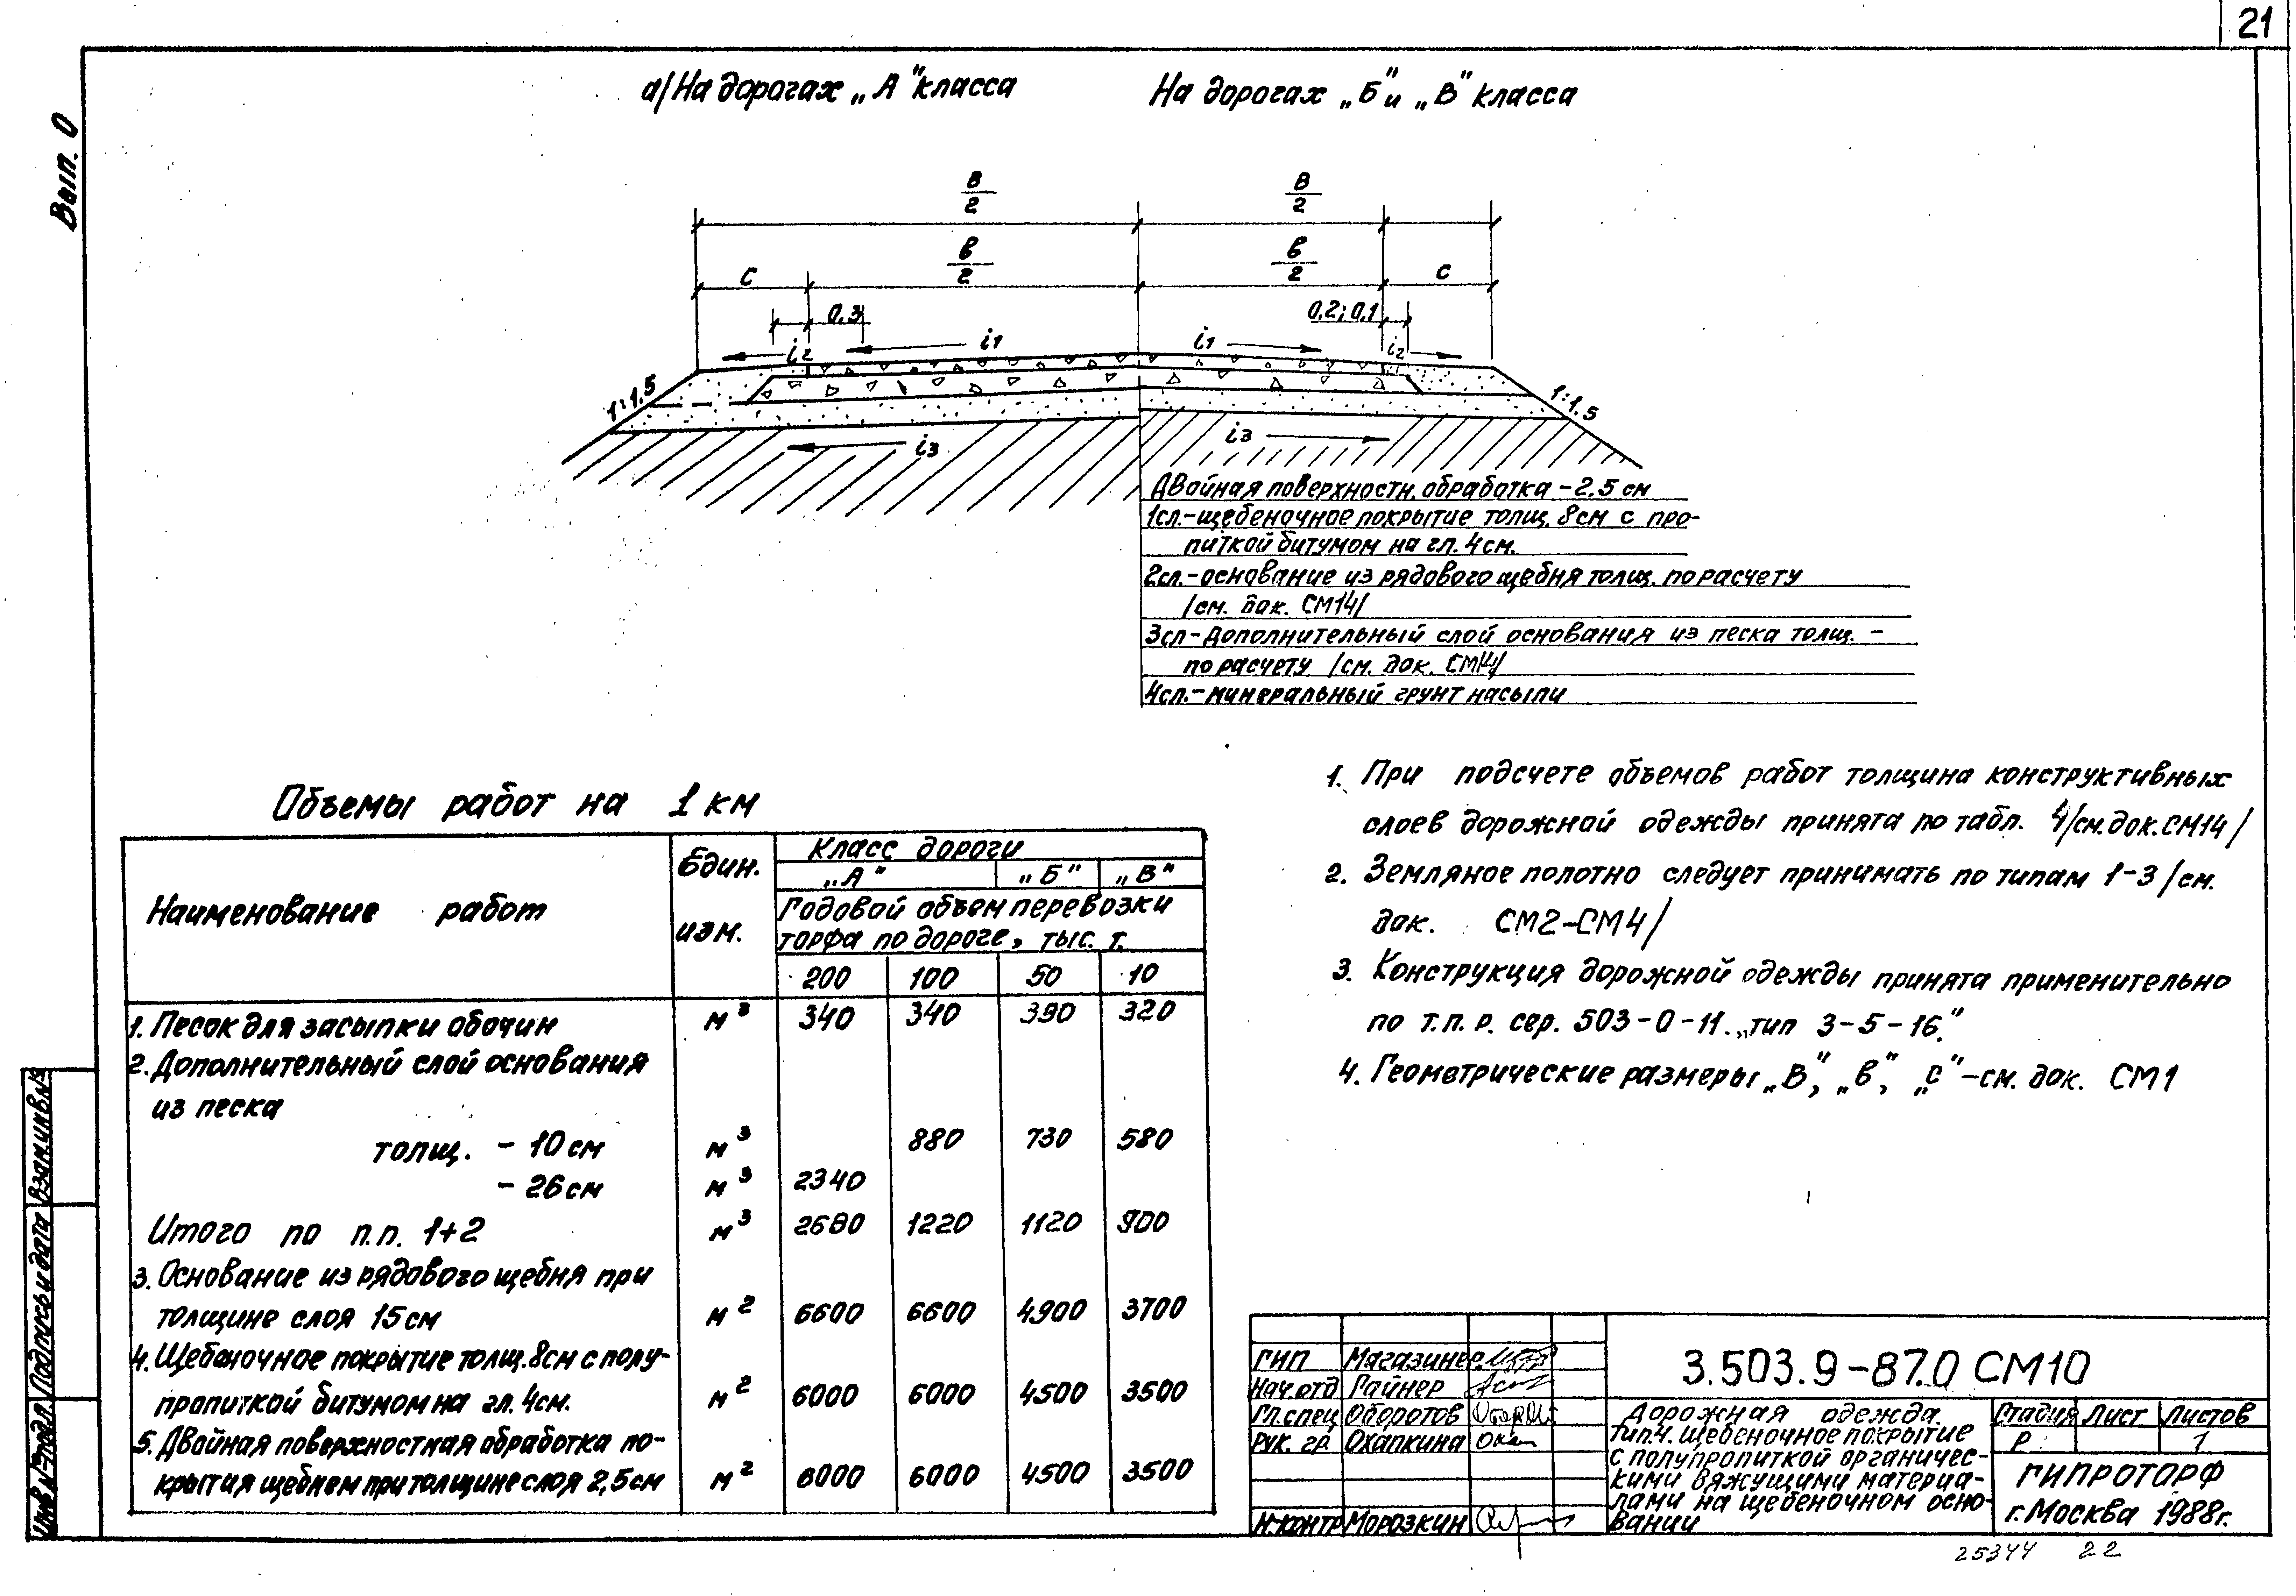 21
Вып. 0
а/На дорогах „А" класса
На дорогах „Б" и „В" класса
В/2
В/2
в/2
в/2
с
с
0,3
0,2; 0,1
i2
i1
i1
i2
1:1,5
1:1,5
i3
i3
Двойная поверхностн. обработка - 2,5 см
1сл.-щебеночное покрытие толщ. 8см с про-
питкой битумом на гл. 4см.
2сл.-основание из рядового щебня толщ. по расчету
/см. док. СМ14/
3сл-дополнительный слой основания из песка толщ. -
по расчету /см. док. СМ14/
4сл.-минеральный грунт насыпи
Объемы работ на 1 км
Наименование работ
Един.
изм.
Класс дороги
„А" „Б" „В"
Годовой объем перевозки
торфа по дороге, тыс. т.
200 100 50 10
1. Песок для засыпки обочин м³ 340 340 390 320
2. Дополнительный слой основания
из песка
толщ. - 10см м³ 880 730 580
- 26см м³ 2340
Итого по п.п. 1+2 м³ 2680 1220 1120 900
3. Основание из рядового щебня при
толщине слоя 15см м² 6600 6600 4900 3700
4. Щебеночное покрытие толщ. 8см с полу-
пропиткой битумом на гл. 4см. м² 6000 6000 4500 3500
5. Двойная поверхностная обработка по-
крытия щебнем при толщине слоя 2,5см м² 6000 6000 4500 3500
1. При подсчете объемов работ толщина конструктивных
слоев дорожной одежды принята по табл. 4/см. док. СМ14/
2. Земляное полотно следует принимать по типам 1-3 /см.
док. СМ2-СМ4/
3. Конструкция дорожной одежды принята применительно
по т.п.р. сер. 503-0-11. „тип 3-5-16."
4. Геометрические размеры „В", „в", „с" -см. док. СМ1
ГИП Магазинер
Нач.отд Гайнер
Гл.спец Оборотов
Рук. гр. Охапкина
Н.контр Морозкин
3.503.9-87.0 СМ10
Дорожная одежда.
Тип 4. Щебеночное покрытие
с полупропиткой органичес-
кими вяжущими материа-
лами на щебеночном осно-
вании
Стадия Лист Листов
Р 1
ГИПРОТОРФ
г. Москва 1988г.
25344 22
Инв.№подл. Подпись и дата Взам.инв.№